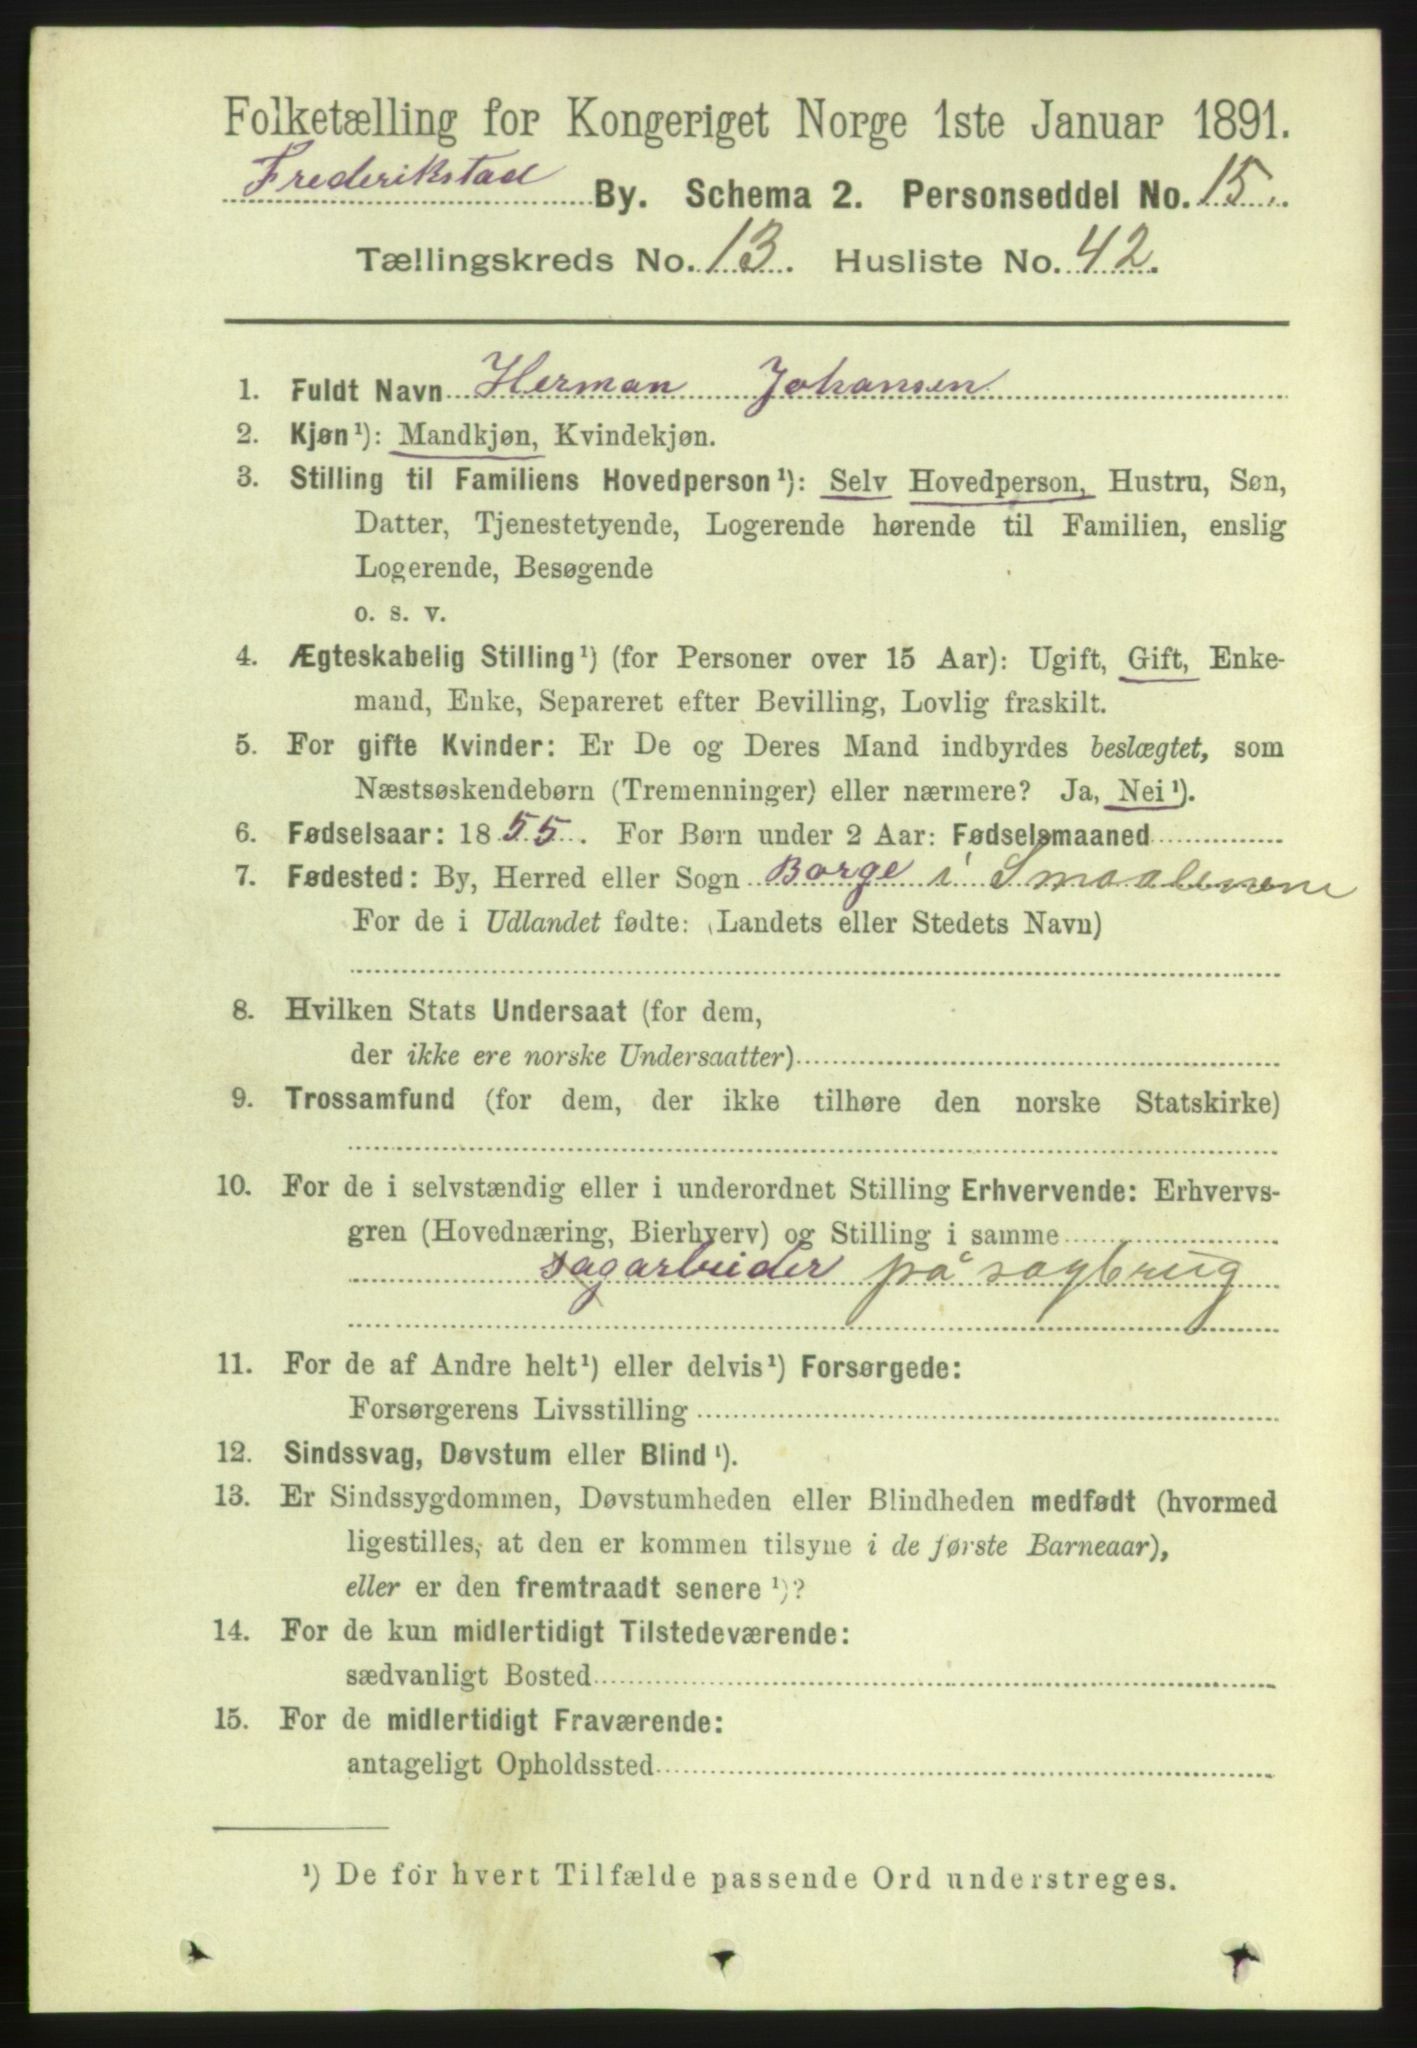 Folketælling for Kongeriget Norge 1ste Januar 1891.
Frederikstad By. Schema 2. Personseddel No. 15.
Tællingskreds No. 13. Husliste No. 42.
1. Fuldt Navn Herman Johansen
2. Kjøn¹): Mandkjøn, Kvindekjøn.
3. Stilling til Familiens Hovedperson¹): Selv Hovedperson, Hustru, Søn,
Datter, Tjenestetyende, Logerende hørende til Familien, enslig
Logerende, Besøgende
o. s. v.
4. Ægteskabelig Stilling¹) (for Personer over 15 Aar): Ugift, Gift, Enke-
mand, Enke, Separeret efter Bevilling, Lovlig fraskilt.
5. For gifte Kvinder: Er De og Deres Mand indbyrdes beslægtet, som
Næstsøskendebørn (Tremenninger) eller nærmere? Ja, Nei¹).
6. Fødselsaar: 1855. For Børn under 2 Aar: Fødselsmaaned
7. Fødested: By, Herred eller Sogn Borge i Smaalenene
For de i Udlandet fødte: (Landets eller Stedets Navn)
8. Hvilken Stats Undersaat (for dem,
der ikke ere norske Undersaatter)
9. Trossamfund (for dem, der ikke tilhøre den norske Statskirke)
10. For de i selvstændig eller i underordnet Stilling Erhvervende: Erhvervs-
gren (Hovednæring, Bierhverv) og Stilling i samme
sagarbeider på sagbrug
11. For de af Andre helt¹) eller delvis¹) Forsørgede:
Forsørgerens Livsstilling
12. Sindssvag, Døvstum eller Blind¹).
13. Er Sindssygdommen, Døvstumheden eller Blindheden medfødt (hvormed
ligestilles, at den er kommen tilsyne i de første Barneaar),
eller er den fremtraadt senere¹)?
14. For de kun midlertidigt Tilstedeværende:
sædvanligt Bosted
15. For de midlertidigt Fraværende:
antageligt Opholdssted
¹) De for hvert Tilfælde passende Ord understreges.